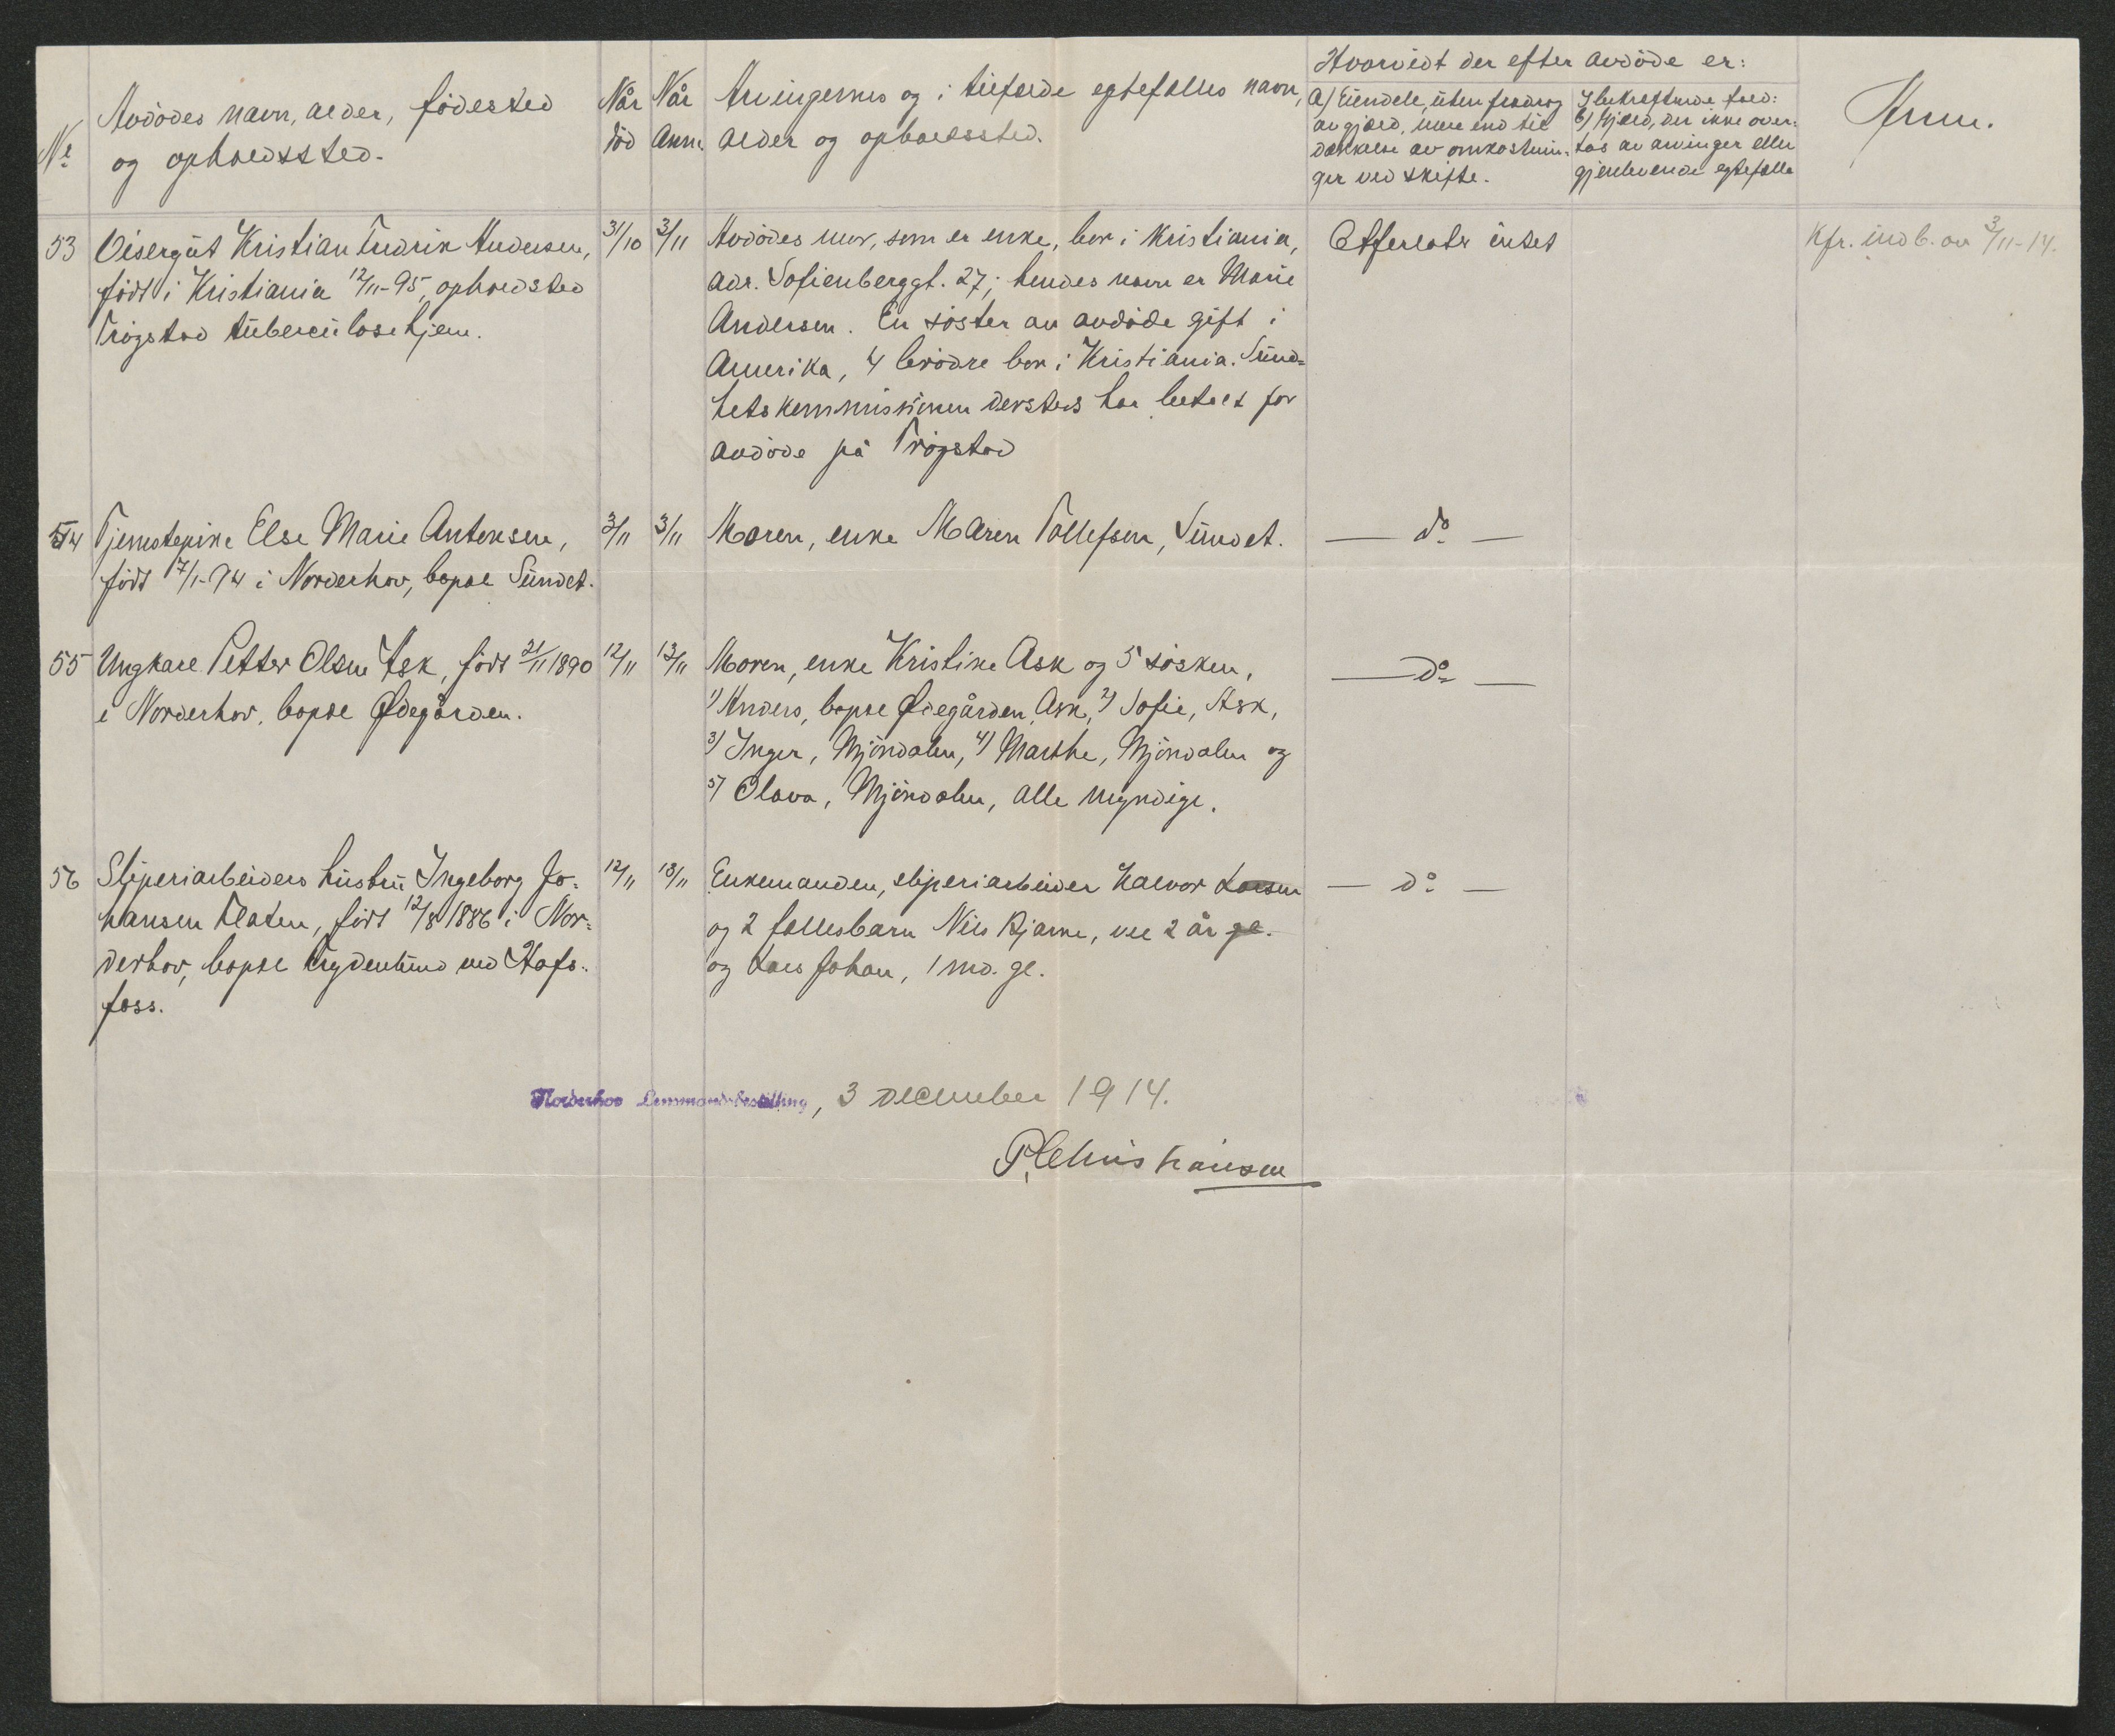 Hvorvidt der efter avdöde er:
No
Avdödes navn, alder, födested
og opholdssted.
Når
död
Når
Anm.
Arvingernes og i tilfælde egtefælles navn,
alder og opholdssted.
a) Eiendele, uten fradrag
av gjæld, mere end til
dækkelse av omkostnin-
ger ved skifte.
I bekræftende fald:
b) Gjæld, der ikke over-
tas av arvinger eller
gjenlevende egtefælle
Anm.
53
Visergut Kristian Fredrik Andersen,
født i Kristiania 12/11-95, opholdsted
Trögstad tuberculosehjem.
31/10
3/11
Avdödes mor, som er enke, bor i Kristiania,
adr. Sofienberggt. 27; hendes navn er Marie
Andersen. En söster av avdöde gift i
Amerika, 4 brödre bor i Kristiania. Sund-
hetskommissionen dersteds har betalt for
avdöde på Trögstad
Efterlatr intet
Kfr. indb. av 3/11-14.
54
Tjenestepike Else Marie Antonsen,
født 17/1-94 i Norderhov, bopæl Sundet.
3/11
3/11
Moren, enke Maren Tollefsen, Sundet.
— do —
55
Ungkarl Petter Olsen Ask, född 21/11 1890
i Norderhov, bopæl Ødegården.
12/11
13/11
Moren, enke Kristine Ask og 5 søsken,
1) Anders, bopæl Ødegården, Ask, 2) Sofie, Ask,
3) Inger, Mjöndalen, 4) Marthe, Mjöndalen og
5) Olava, Mjöndalen, alle myndige.
— do —
56
Sliperiarbeiders hustru Ingeborg Jo-
hansen Flaten, født 12/8 1886 i Nor-
derhov, bopæl Trydenlund ved Hofs-
foss.
12/11
13/11
Enkemanden, sliperiarbeider Halvor Larsen
og 2 fællesbarn Nils Bjarne, vel 2 år gl.
og Lars Johan, 1 md. gl.
— do —
Norderhov Lensmandsbestilling, 3 december 1914.
P. Christiansen